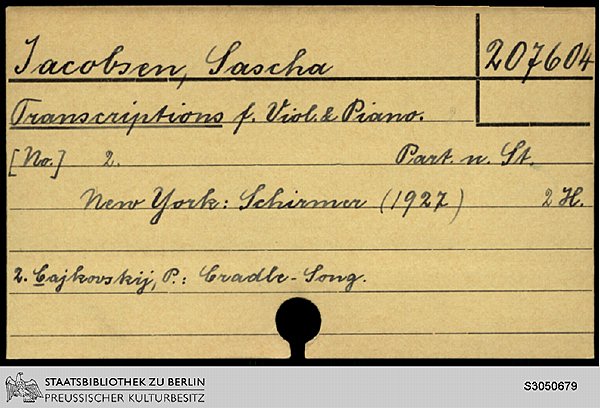 Jacobsen, Sascha
207604
Transcriptions f. Viol. & Piano.
[No.] 2. Part. u. St.
New York: Schirmer (1927) 2 H.
2. Čajkovskij, P.: Cradle-Song.
STAATSBIBLIOTHEK ZU BERLIN
PREUSSISCHER KULTURBESITZ
S3050679